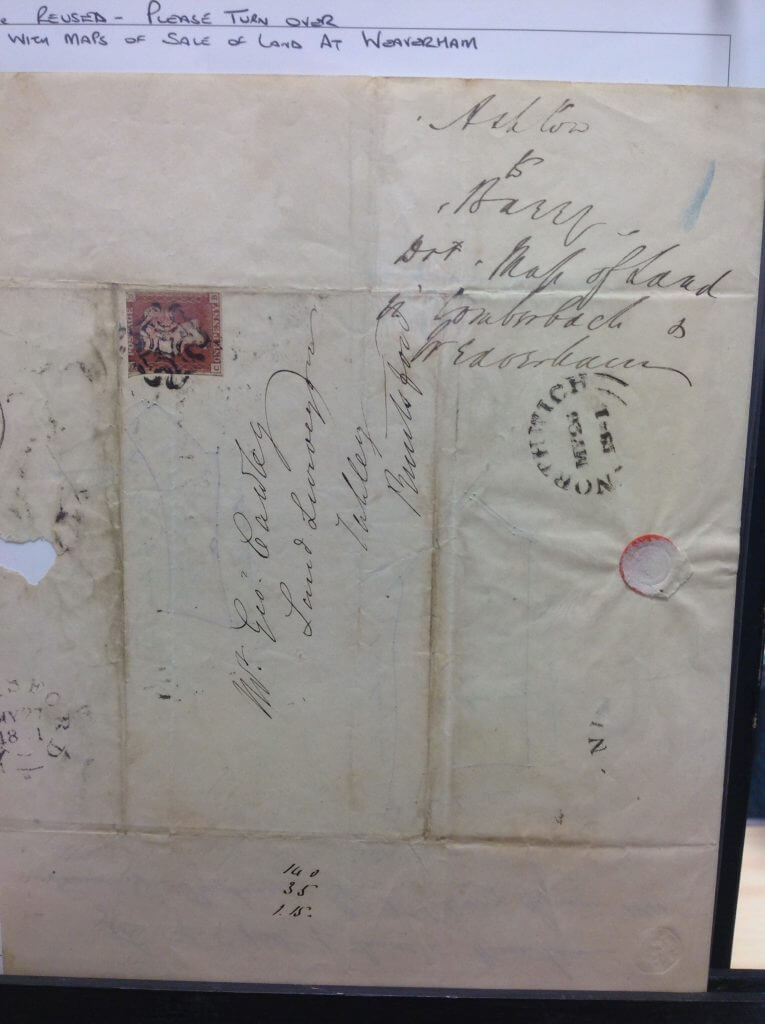 REUSED - PLEASE TURN OVER
WITH MAPS OF SALE OF LAND AT WEAVERHAM
Ashton
to
Barry
Dft. Map of Land
in Comberbach &
Weaverham
ONE PENNY
C
Mr. Geo: Cawley
Land Surveyor
Ashley
Knutsford
NORTHWICH
MY 23
140
35
1.15.